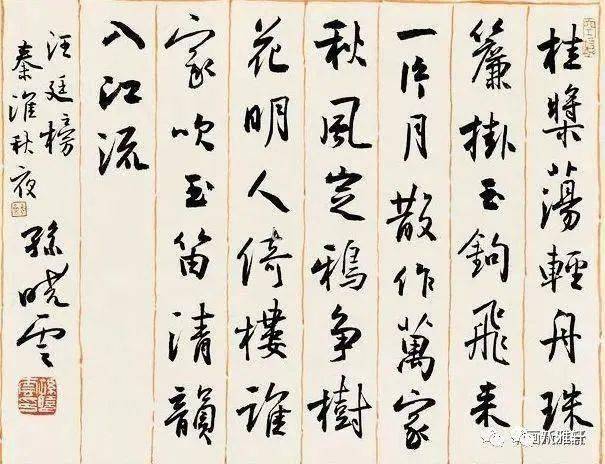 桂槳蕩輕舟珠
簾掛玉鉤飛来
一片月散作萬家
秋風定鴉争樹
花明人倚樓誰
家吹玉笛清韻
入江流
汪廷榜
秦淮秋夜
孫晓雲
雅轩